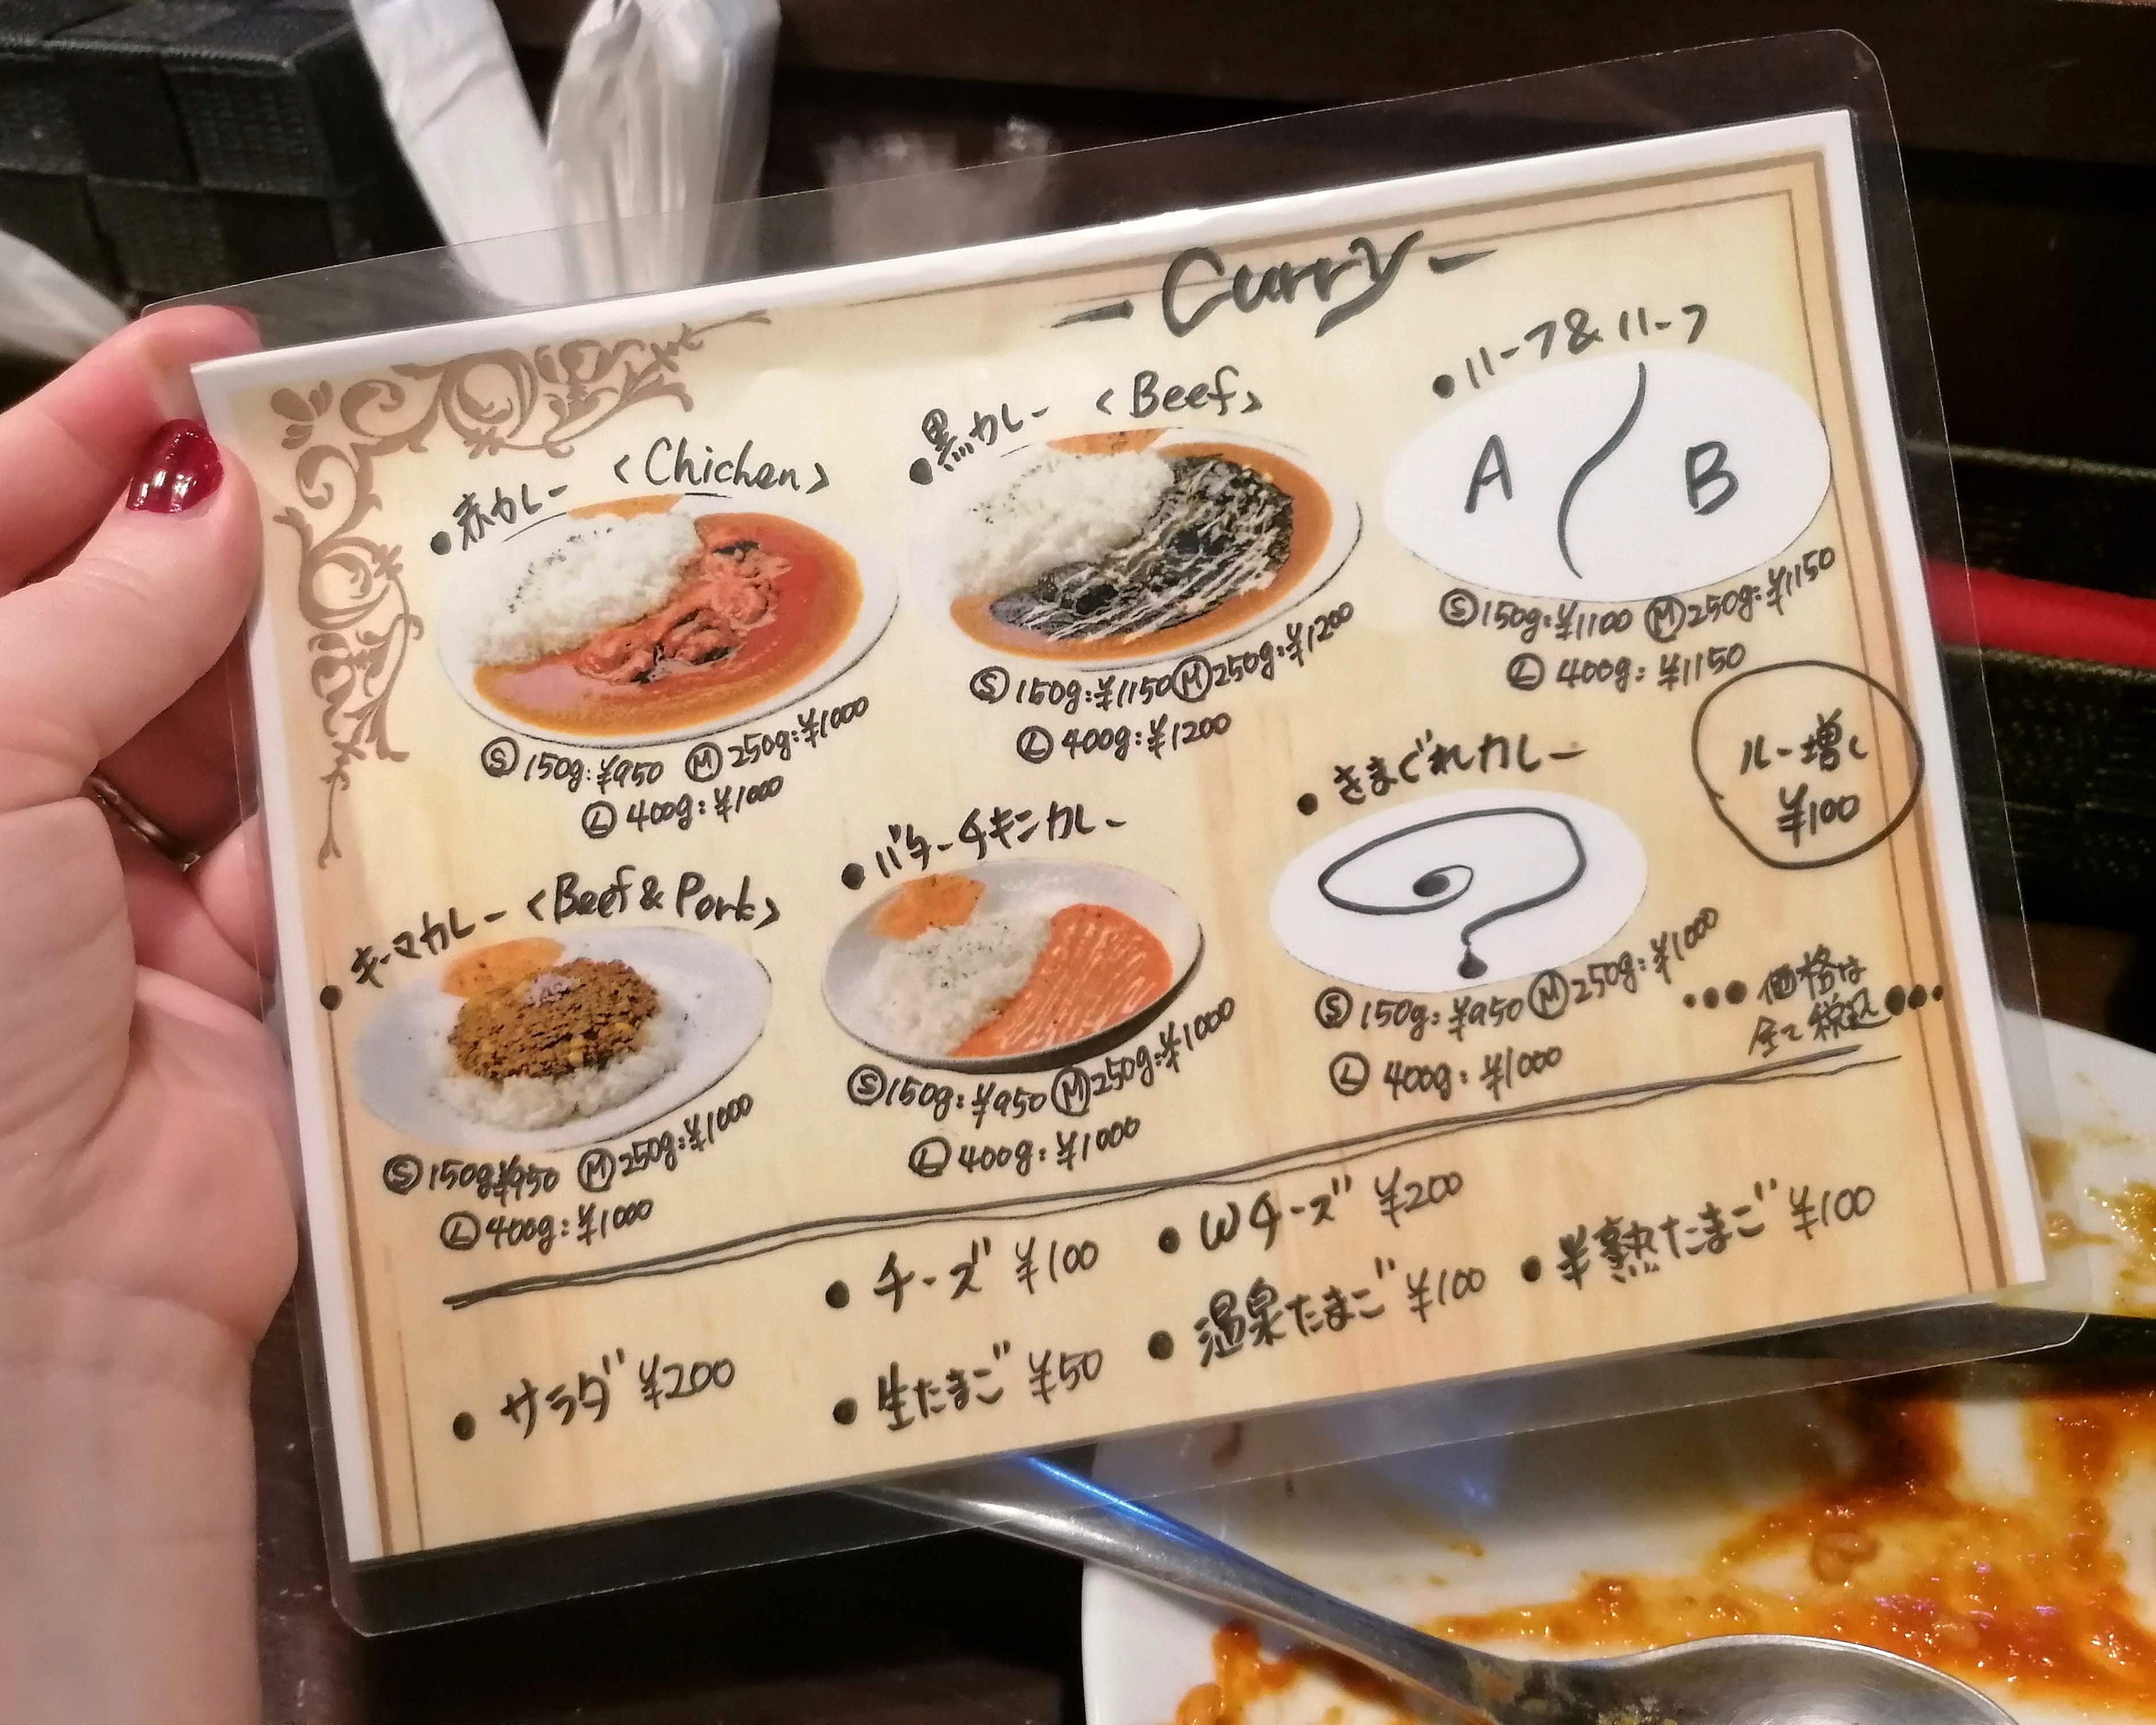 - Curry -
・赤カレー <Chicken>
Ⓢ150g:¥950 Ⓜ250g:¥1000
Ⓛ400g:¥1000
・黒カレー <Beef>
Ⓢ150g:¥1150 Ⓜ250g:¥1200
Ⓛ400g:¥1200
・ハーフ&ハーフ
A B
Ⓢ150g:¥1100 Ⓜ250g:¥1150
Ⓛ400g:¥1150
・キーマカレー <Beef & Pork>
Ⓢ150g¥950 Ⓜ250g:¥1000
Ⓛ400g:¥1000
・バターチキンカレー
Ⓢ150g:¥950 Ⓜ250g:¥1000
Ⓛ400g:¥1000
・きまぐれカレー
?
Ⓢ150g:¥950 Ⓜ250g:¥1000
Ⓛ400g:¥1000
ルー増し
¥100
・・・価格は
全て税込・・・
・チーズ ¥100
・Wチーズ ¥200
・サラダ ¥200
・生たまご ¥50
・温泉たまご ¥100
・半熟たまご ¥100